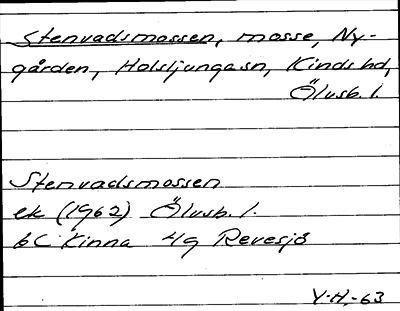 Stenvadsmossen, mosse, Ny-
gården, Holsljunga sn, Kinds hd,
Älvsb. l.
Stenvadsmossen
ek (1962) Älvsb. l.
6C Kinna 4g Revesjö
Y.H.-63